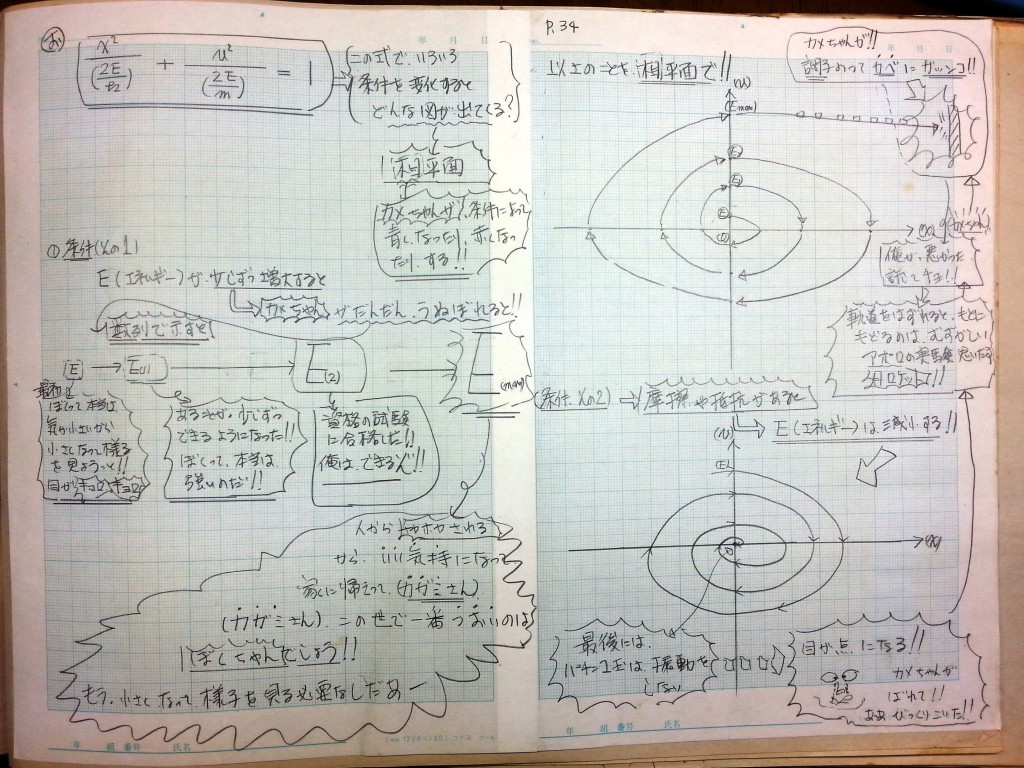 お
x²/(2E/k) + v²/(2E/m) = 1
この式で、いろいろ
条件を変化すると
どんな図が出てくる?
相平面
カメちゃんが、条件によって
青くなったり、赤くなっ
たり、する!!
① 条件(その1)
E(エネルギー)が、少しずつ増大すると
カメちゃんがだんだん、うぬぼれると!!
数列で示すと
E
E(1)
E(2)
E(max)
最初は
ぼくって本当は
気が小さいから
小さくなって様子
を見ようっと!!
目がキョロ、キョロ
あることが、少しずつ
できるようになった!!
ぼくって、本当は、
強いのだ!!
資格の試験
に合格した!!
俺は、できるゾ!!
人から チヤホヤ される
から、いい気持になって
家に帰えって、(カガミさん)
(カガミさん)、この世で一番 うまいのは
ぼくちゃんでしょう!!
もう、小さくなって、様子を見る必要なしだあー
年 組 番号 氏名
年 月 日
P.34
以上のことを、相平面で!!
(v)
(Emax)
カメちゃんが!!
調子のって カベに ガッツン!!
年 月 日
俺が、悪かった
許してチョ!!
軌道をはずれると、もとに
もどるのは、むずかしい
条件(その2)
摩擦や抵抗があると
E(エネルギー)は、減少する!!
(v)
(x)
最後には、
パチンコ玉は、振動を
しない
目が点になる!!
カメちゃんが
ばれて!!
ああ びっくりこいた!!
年 組 番号 氏名